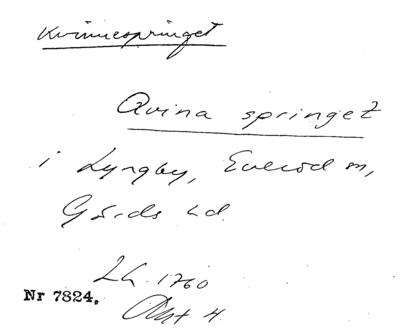 Kvinnespringet
Qvina springet
i Lyngby, Everöd sn,
Gärds hd.
LA. 1760
Akt 4.
Nr 7824.